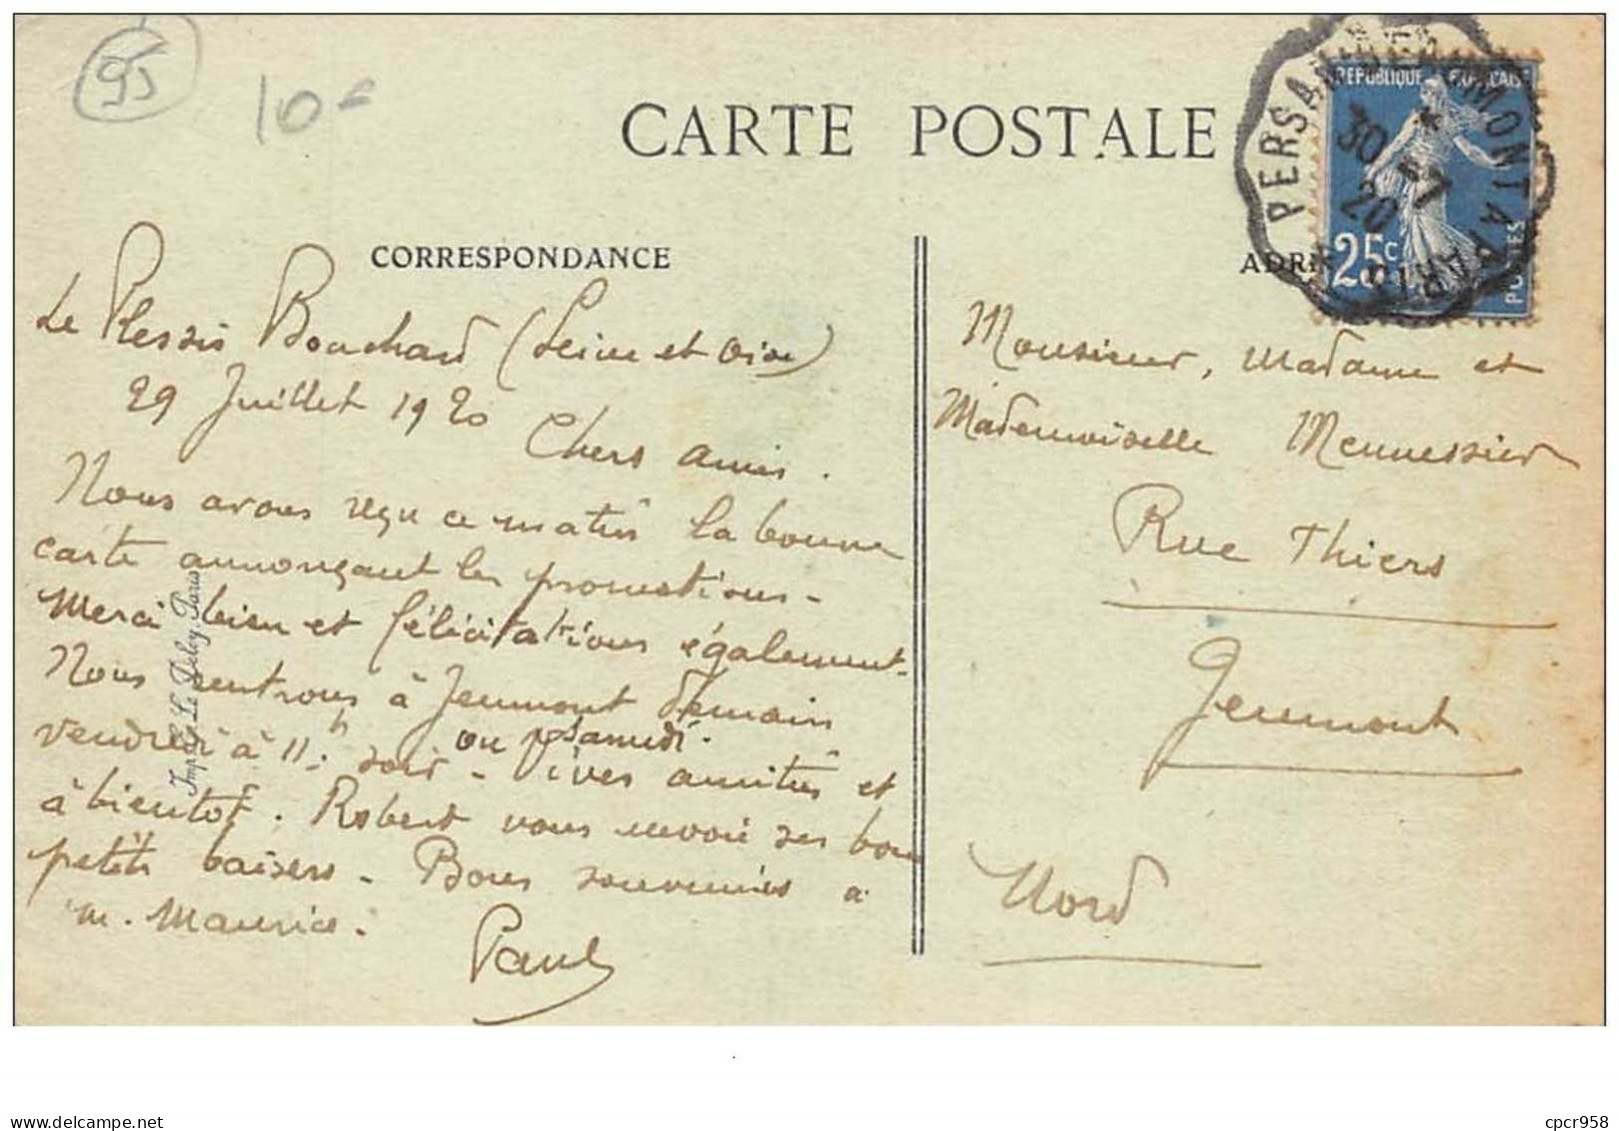 95
10-
CARTE POSTALE
PERSAN-BEAUMONT A PARIS
30-7
20
REPUBLIQUE FRANÇAISE
25c
POSTES
CORRESPONDANCE
Le Plessis Bouchard (Seine et Oise)
29 Juillet 1920
Chers amis.
Nous avons reçu ce matin la bonne
carte annonçant les promotions-
Merci bien et félicitations également-
Nous rentrons à Jeumont demain
vendredi à 11h soir - ou samedi.
Vives amitiés et
à bientôt. Robert vous envoie ses bons
petits baisers - Bons souvenirs à
M. Maurice.
Paul
Imp. Le Deley, Paris
Monsieur, Madame et
Mademoiselle Mennessier
Rue Thiers
Jeumont
Nord
delcampe.net
cpcr958